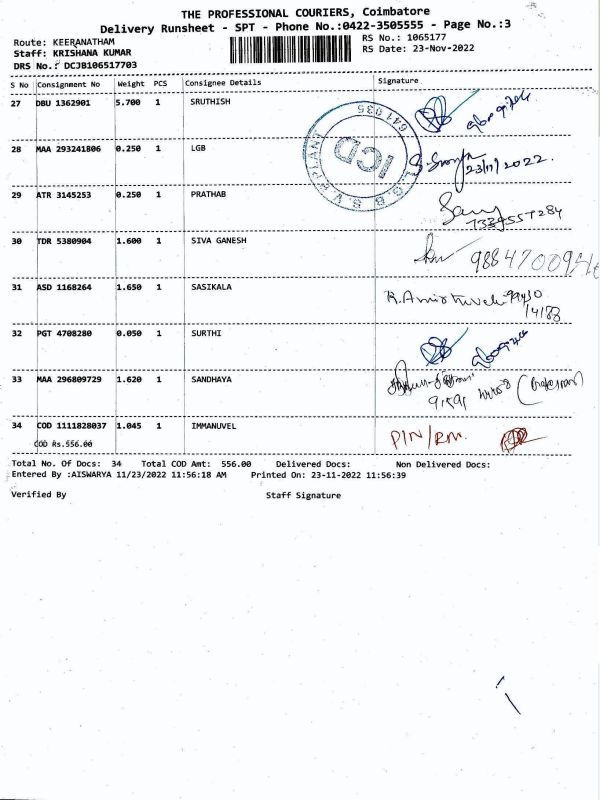 THE PROFESSIONAL COURIERS, Coimbatore
Delivery Runsheet - SPT - Phone No.:0422-3505555 - Page No.:3
Route: KEERANATHAM
RS No.: 1065177
Staff: KRISHANA KUMAR
RS Date: 23-Nov-2022
DRS No.: DCJB106517703
S No Consignment No Weight PCS Consignee Details Signature
27 DBU 1362901 5.700 1 SRUTHISH
641 035
ICD
28 MAA 293241806 0.250 1 LGB
23/11/2022.
29 ATR 3145253 0.250 1 PRATHAB
30 TDR 5380904 1.600 1 SIVA GANESH
31 ASD 1168264 1.650 1 SASIKALA
32 PGT 4708280 0.050 1 SURTHI
33 MAA 296809729 1.620 1 SANDHAYA
34 COD 1111828037 1.045 1 IMMANUVEL PIN/RM.
COD Rs.556.00
Total No. Of Docs: 34 Total COD Amt: 556.00 Delivered Docs: Non Delivered Docs:
Entered By :AISWARYA 11/23/2022 11:56:18 AM Printed On: 23-11-2022 11:56:39
Verified By Staff Signature